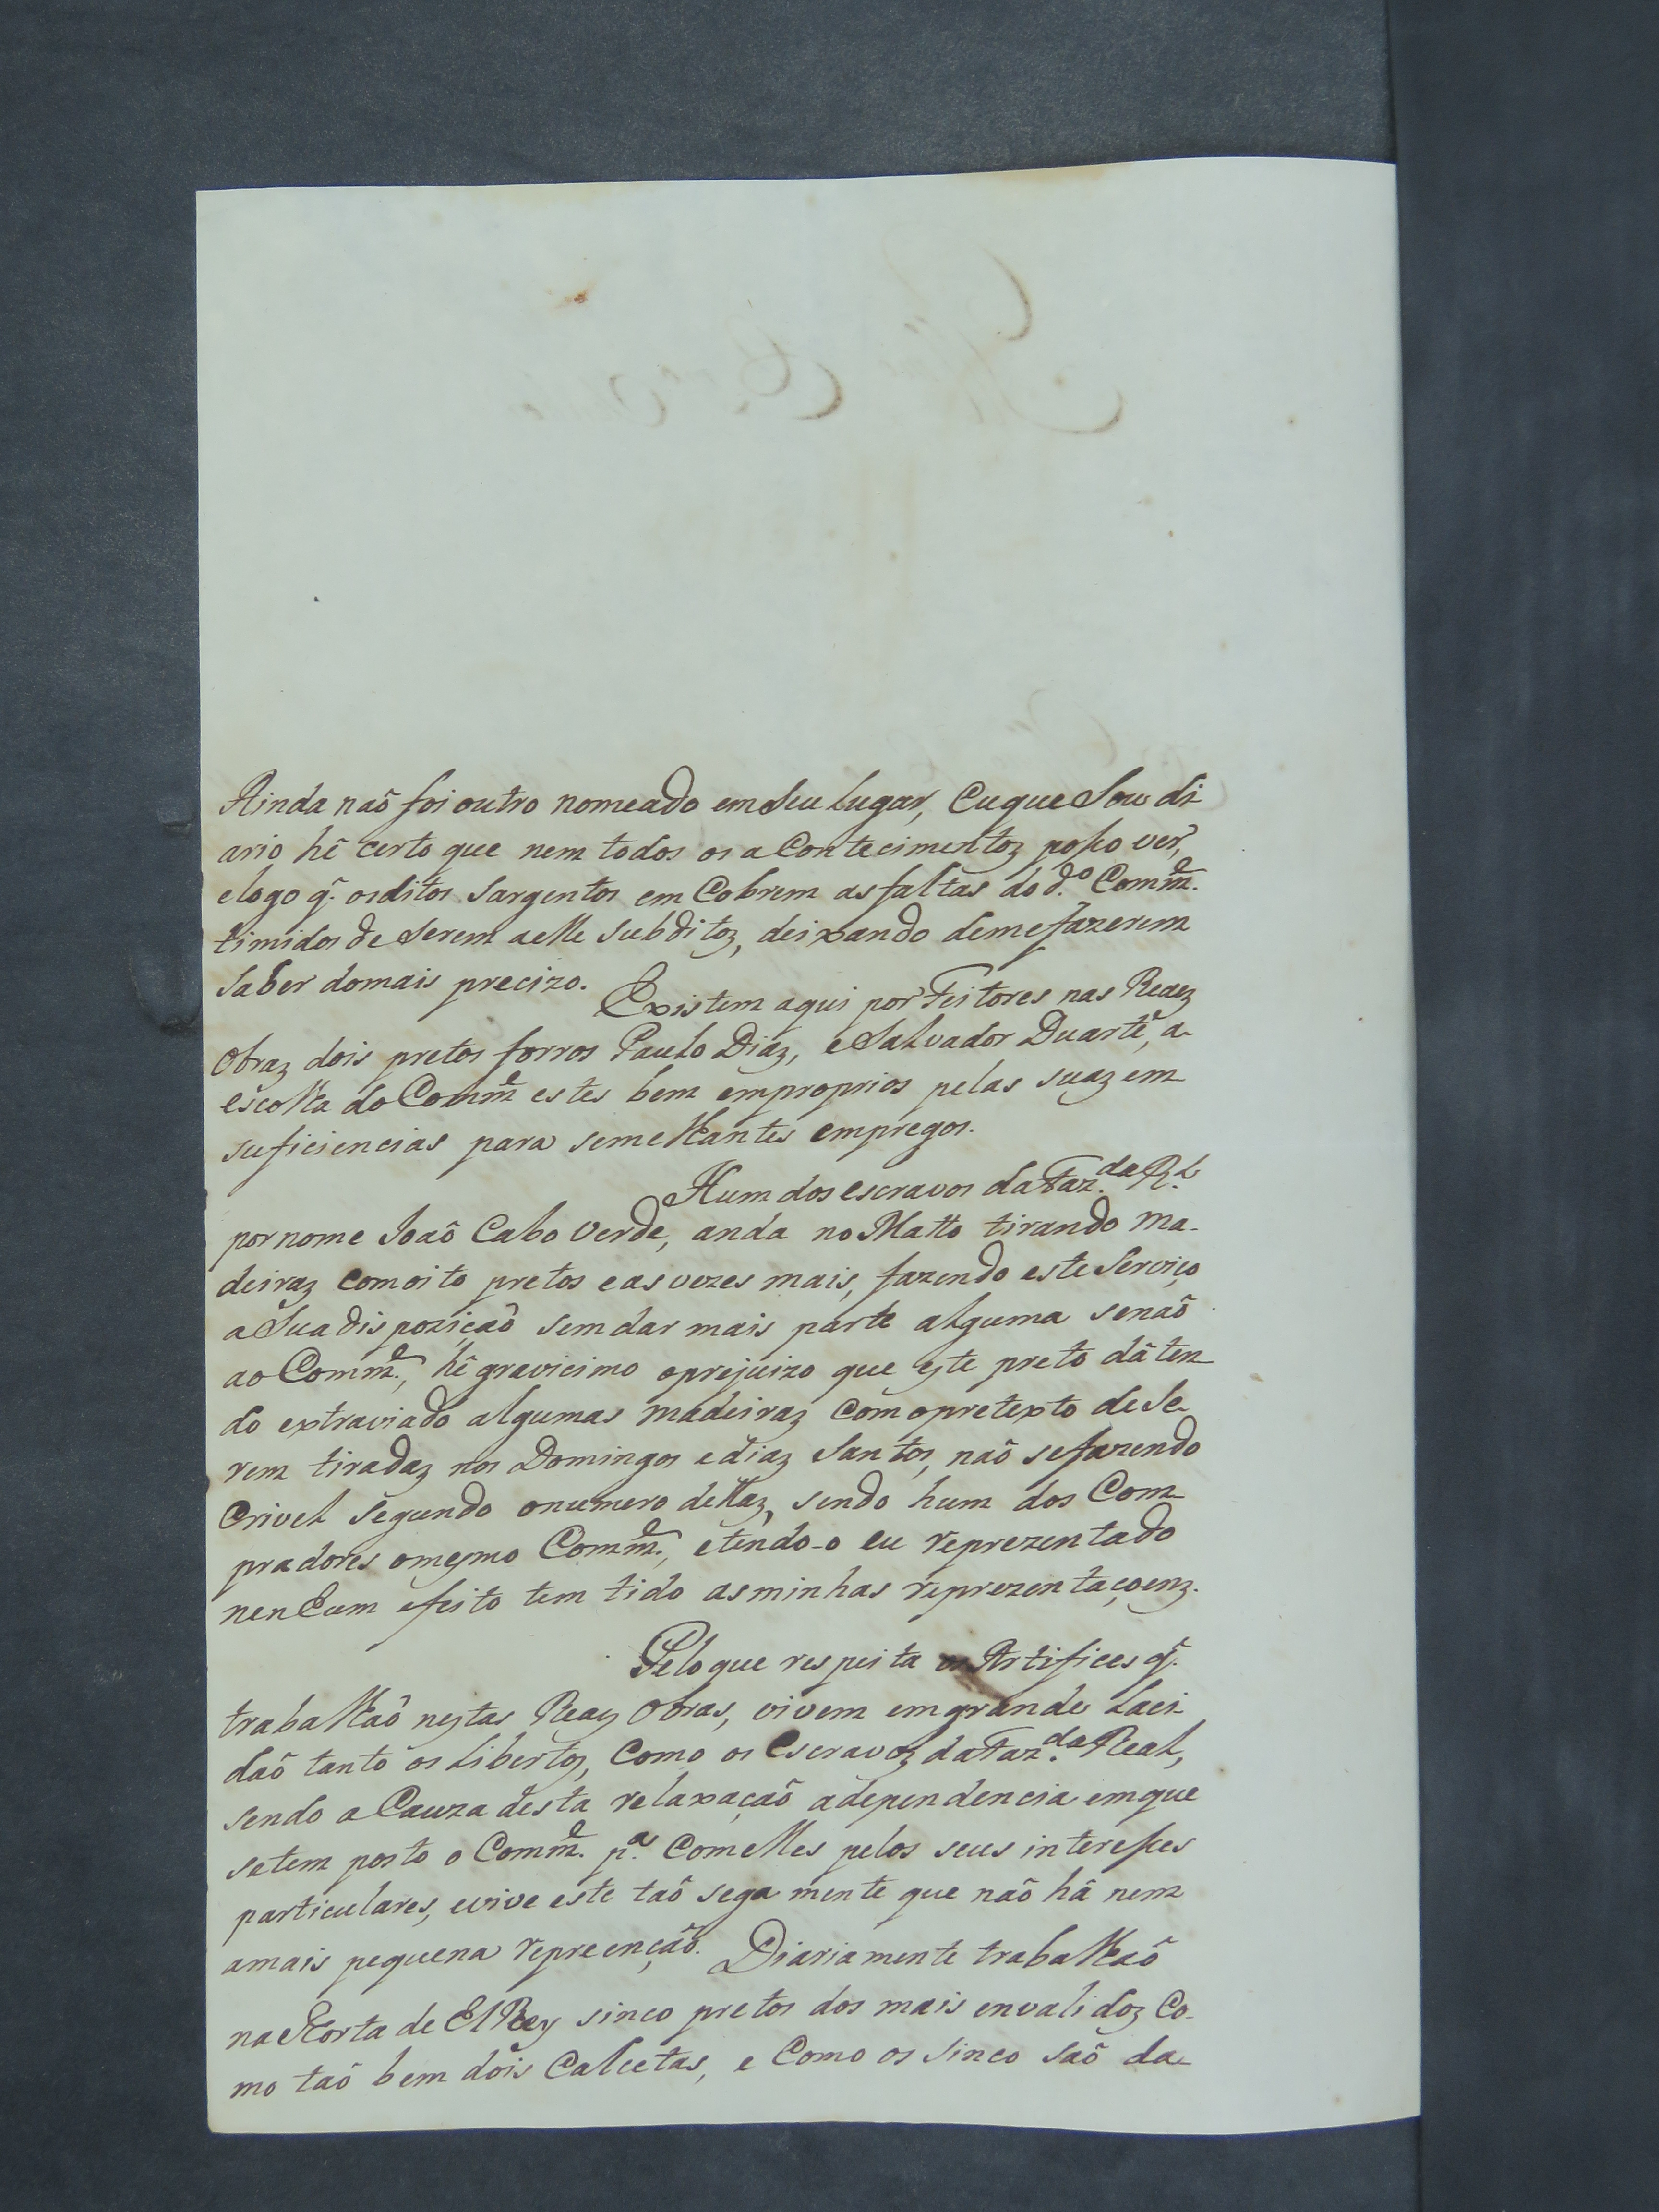 Ainda naõ foi outro nomeado em Seu lugar, Euque Sou di
ario, hê certo que nem todos os aContecimentoz poßo ver,
elogo q̃. os ditos Sargentos em Cobrem as faltas do d.º Comm.e
timidos de Serem aelle Subditoz, deixando demefazerem
Saber domais precizo.
Existem aqui por Feitores nas Reaez
obraz dois pretos forros Paulo Diaz, eSalvador Duarte, a
escolha do Comm.e estes bem emproprios pelas suaz em
suficiencias para semelhantes empregos.
Hum dos escravos da Faz.da R.l
por nome Joaõ Cabo Verde, anda no Matto tirando ma-
deiraz com oito pretos e as vezes mais, fazendo este Serviço
a Sua dispoziçaõ sem dar mais parte alguma senaõ
ao Comm.e, hê gravicimo oprejuizo que este preto dâ ten
do extraviado algumas madeiraz com opretexto de Se
rem tiradaz nos Domingos e diaz Santos, naõ sefazendo
Crivel segundo onumero dellaz, sendo hum dos Com
pradores omesmo Comm.e, etendo-o eu reprezentado
nenhum efeito tem tido as minhas reprezentaçoenz.
Pelo que respeita os Artifices q̃.
trabalhaõ nestas Reaes obras, vivem em grande laci
daõ tanto os libertos, Como os Escravoz da Faz.da Real,
sendo a Cauza desta relaxaçaõ adependencia em que
setem posto o Comm.e p.a Comelles pelos seus intereßes
particulares, evive este taõ segamente que naõ hâ nem
amais pequena repreençaõ. Diariamente trabalhaõ
na Horta de ElRey sinco pretos dos mais envalidoz Co-
mo taõ bem dois Calcetas, e Como os Sinco saõ da